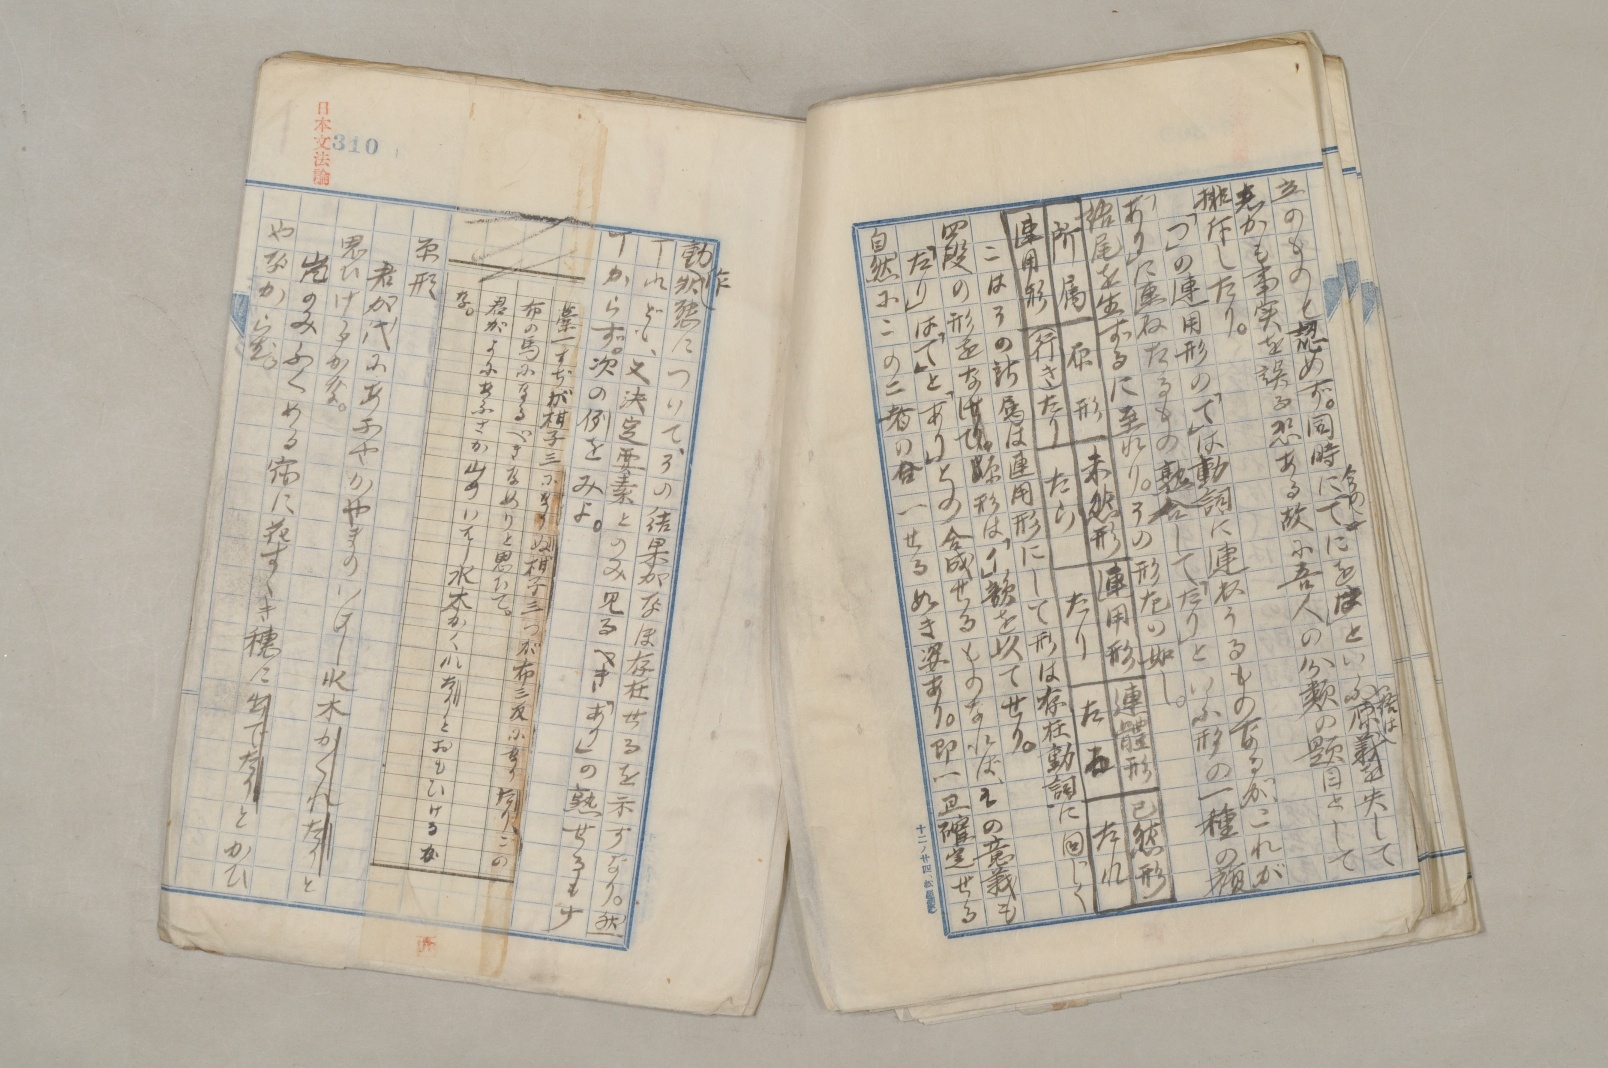 立のものと認めず。同時にてにをはといふ原義を失して
恙かも事実を誤る恐ある故に吾人の分類の題目として
排斥したり。
「つ」の連用形の「て」は動詞に連れるものあるが、これが
「あり」に重ねたるもの熟合して「たり」といふ形の一種の複
語尾を生ずるに至れり。その形左の如し。
所属 原形 未然形 連用形 連體形 已然形
連用形 (行き)たり たら たり たる たれ
こはその所属は連用形にして形は存在動詞に同じく
四段の形をなせり。原形は「イ」韻を以てせり。
「たり」は「て」と「あり」との合成せるものなれば、その意義も
自然にこの二者の合一せる如き姿あり。即一旦確定せる
十二ノ廿四
日本文法論
310
動作状態について、その結果がなほ存在せるを示すなり。然
れども、又決定要素とのみ見るべき「あり」の熟せるも少
からず。次の例をみよ。
藁一すぢが柑子三になりぬ柑子三つが布三反になりたり、この
布の馬になるべきなめりと思ひて。
君がよにあふさか山のいはし水木がくれたりとおもひけるか
な。
原形
君が代にあふさかやまのいはし水木がくれたりと
思ひけるかな。
嵐のみふくめる宿に花すゝき穂に出でたりとかひ
やなからむ。